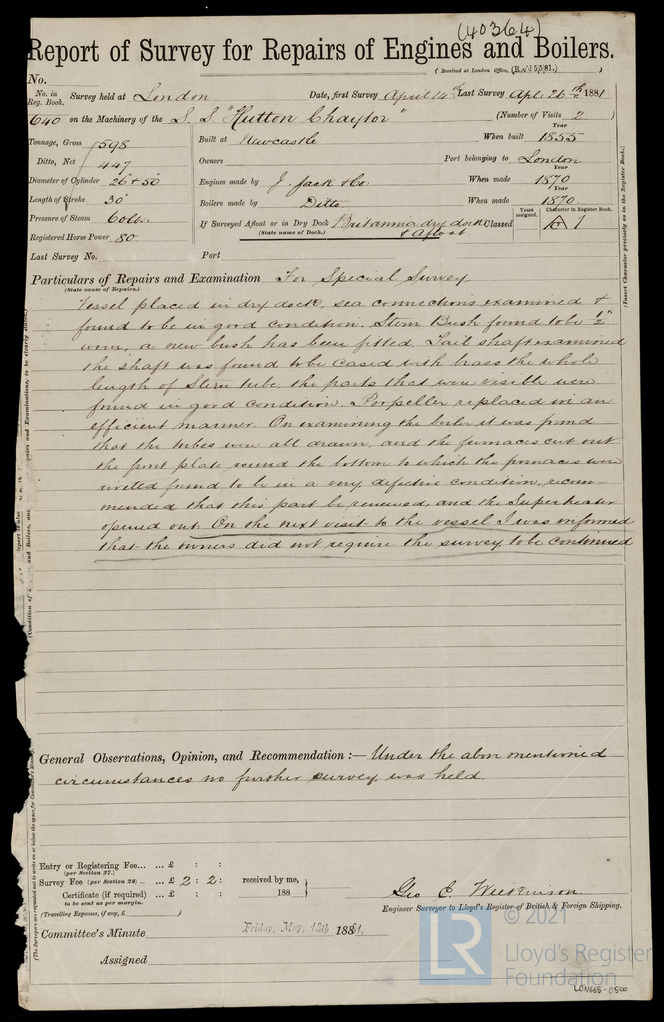 (40364)
Report of Survey for Repairs of Engines and Boilers.
(Received at London Office, (Rec'd 5.5.81.)
No.
No. in Reg. Book. Survey held at London Date, first Survey April 14th Last Survey Apl: 26th 1881
640 on the Machinery of the S. S. "Hutton Chaytor" (Number of Visits 2
Tonnage, Gross 598 Built at Newcastle When built Year 1855
Ditto, Net 447 Owners Port belonging to London
Diameter of Cylinder 26" + 50" Engines made by J. Jack & Co. When made Year 1870
Length of Stroke 30" Boilers made by Ditto When made Year 1870
Pressure of Steam 60 lbs. If Surveyed Afloat or in Dry Dock Britannia dry dock & Afloat Classed
(State name of Dock.)
Years assigned. Character in Register Book.
A 1
(Insert Character precisely as in the Register Book.)
Registered Horse Power 80
Last Survey No. Port
Particulars of Repairs and Examination For Special Survey
(State cause of Repairs.)
Vessel placed in dry dock, sea connections examined &
found to be in good condition. Stern Bush found to be 1/2"
worn, a new bush has been fitted. Tail shaft examined
the shaft was found to be cased with brass the whole
length of Stern tube, the parts that were visible were
found in good condition. Propeller replaced in an
efficient manner. On examining the boiler it was found
that the tubes were all drawn, and the furnaces cut out
the front plate round the bottom to which the furnaces were
rivetted found to be in a very defective condition, recom-
mended that this part be renewed, and the Superheater
opened out. On the next visit to the vessel I was informed
that the owners did not require the survey to be continued
General Observations, Opinion, and Recommendation :— Under the above mentioned
circumstances no further survey was held.
Entry or Registering Fee... ... £ : :
(per Section 27.)
Survey Fee (per Section 28) ... ... £ 2 : 2 : received by me,
Certificate (if required) ... £ : : 188
to be sent as per margin.
(Travelling Expenses, if any, £ )
Geo C Wilkinson
Engineer Surveyor to Lloyd's Register of British & Foreign Shipping.
Committee's Minute Friday, May, 13th 1881.
Assigned
LR
© 2021
Lloyd's Register
Foundation
LON665-0500